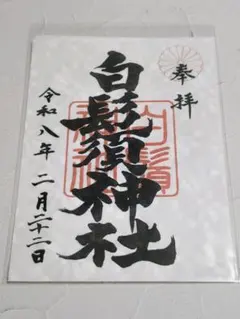 奉拝
白鬚神社
令和八年 二月二十二日